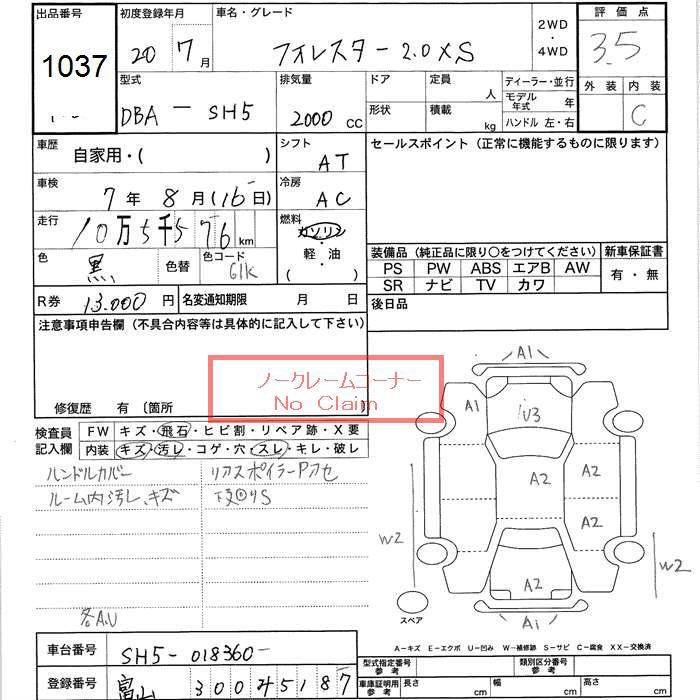 出品番号 初度登録年月 車名・グレード 2WD・4WD 評価点
1037 20 7月 フォレスター 2.0XS 3.5
型式 排気量 ドア 定員 人 ディーラー・並行 外装 内装
DBA - SH5 2000 CC 形状 積載 kg モデル年式 年 C
ハンドル 左・右
車歴 自家用・( ) シフト AT セールスポイント(正常に機能するものに限ります)
車検 7年 8月(16日) 冷房 AC
走行 10万5千576km 燃料 ガソリン・軽・油 ( )
色 黒 色替 色コード 61K
装備品(純正品に限り○をつけてください) 新車保証書
PS PW ABS エアB AW 有・無
SR ナビ TV カワ
R券 13,000円 名変通知期限 月 日 後日品
注意事項申告欄(不具合内容等は具体的に記入して下さい)
ノークレームコーナー
No Claim
修復歴 有〔箇所
検査員記入欄 FW キズ・飛石・ヒビ割・リペア跡・X要
内装 キズ・汚レ・コゲ・穴・スレ・キレ・破レ
ハンドルカバー リアスポイラーPアセ
ルーム内汚レ、キズ
各A.U
A1
A1 U3
A2 A2
A2
W2 W2
A2
スペア A1
A-キズ E-エクボ U-凹み W-補修跡 S-サビ C-腐食 XX-交換済
車台番号 SH5-018360-
登録番号 富山 300 そ 5187
型式指定番号 参考 類別区分番号 参考
車庫証明用 参考 長さ cm 幅 cm 高さ cm